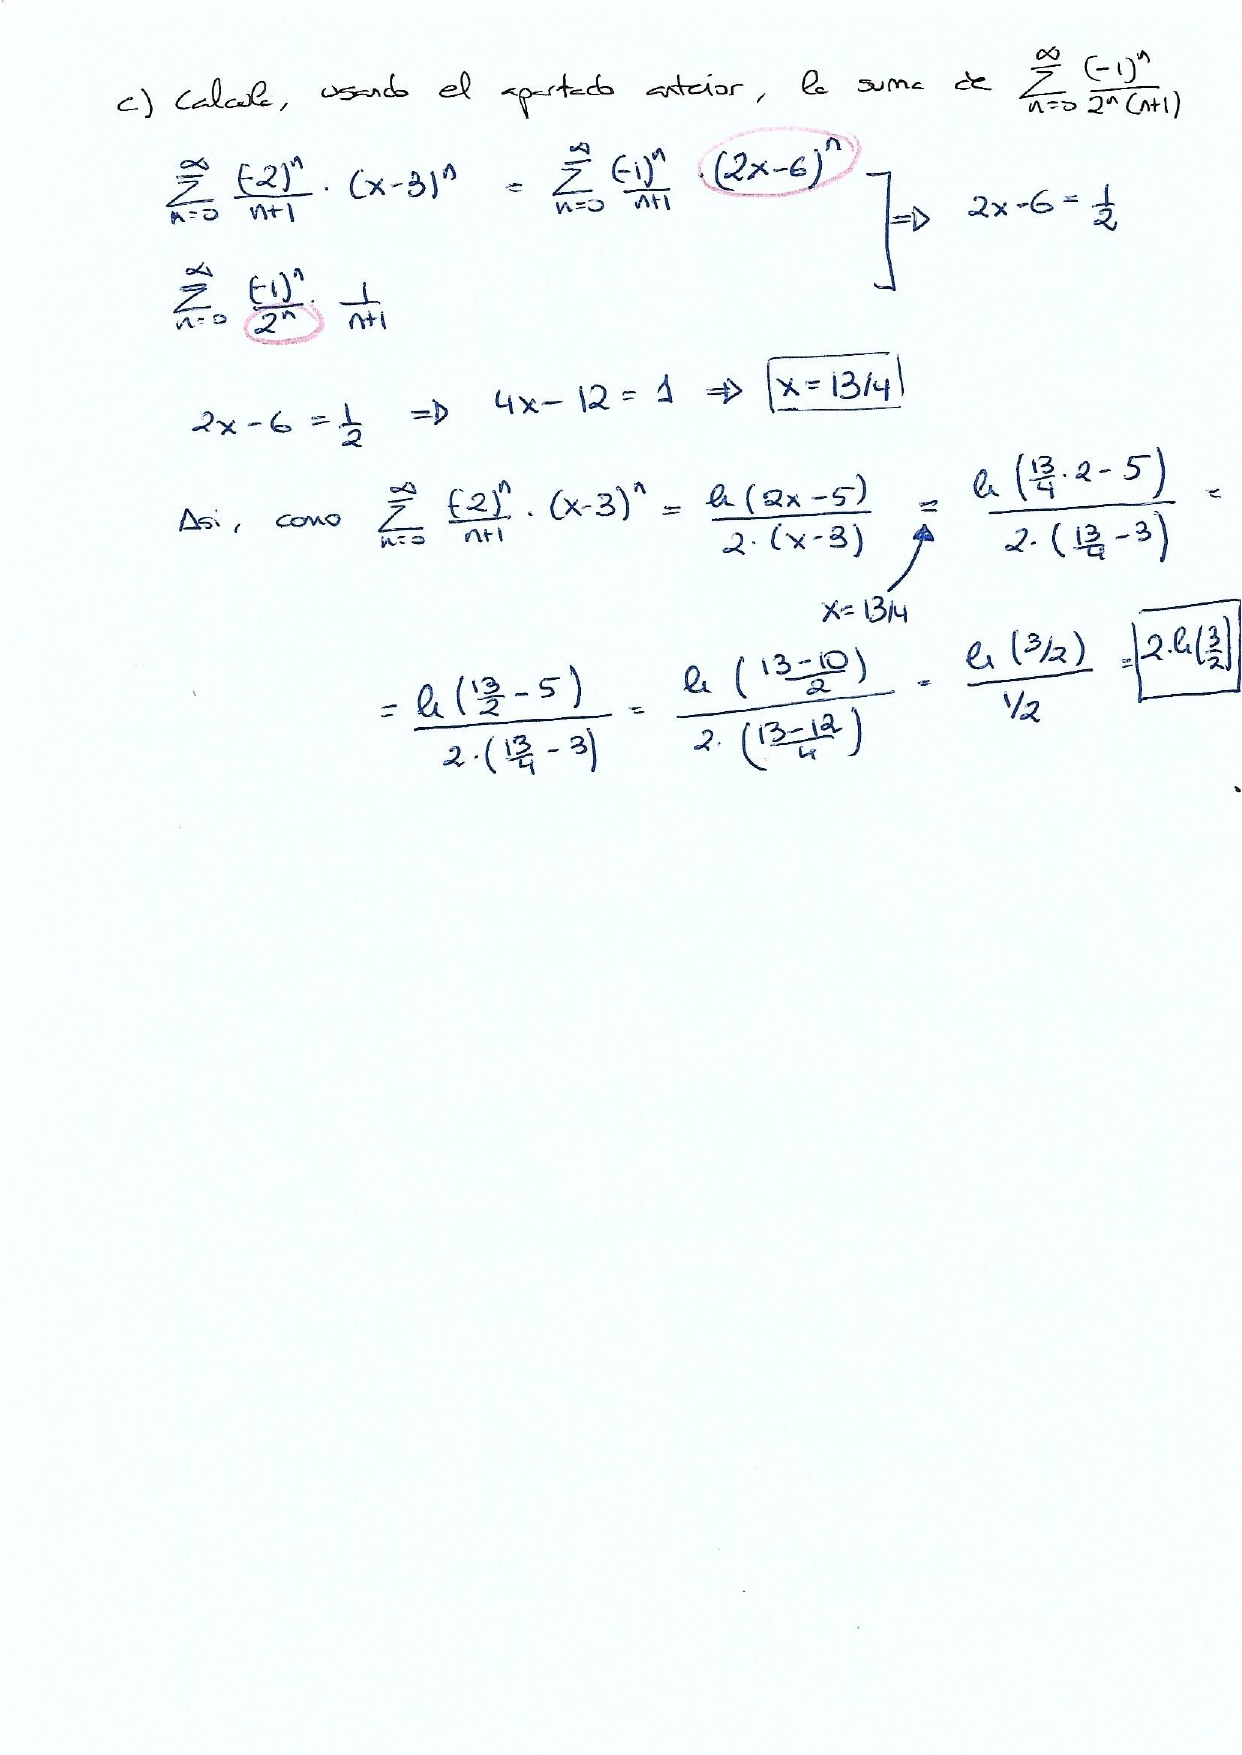 c) Calcule, usando el apartado anterior, la suma de ∑_{n=0}^{∞} (-1)^n / 2^n (n+1)
∑_{n=0}^{∞} (-2)^n / n+1 · (x-3)^n = ∑_{n=0}^{∞} (-1)^n / n+1 · (2x-6)^n ] ⇒ 2x-6 = 1/2
∑_{n=0}^{∞} (-1)^n / 2^n · 1 / n+1
2x-6 = 1/2 ⇒ 4x-12 = 1 ⇒ x = 13/4
Asi, como ∑_{n=0}^{∞} (-2)^n / n+1 · (x-3)^n = ln (2x-5) / 2·(x-3) = ln (13/4 · 2 - 5) / 2·(13/4 - 3) =
x = 13/4
= ln (13/2 - 5) / 2·(13/4 - 3) = ln (13-10 / 2) / 2·(13-12 / 4) = ln (3/2) / 1/2 = 2·ln(3/2)